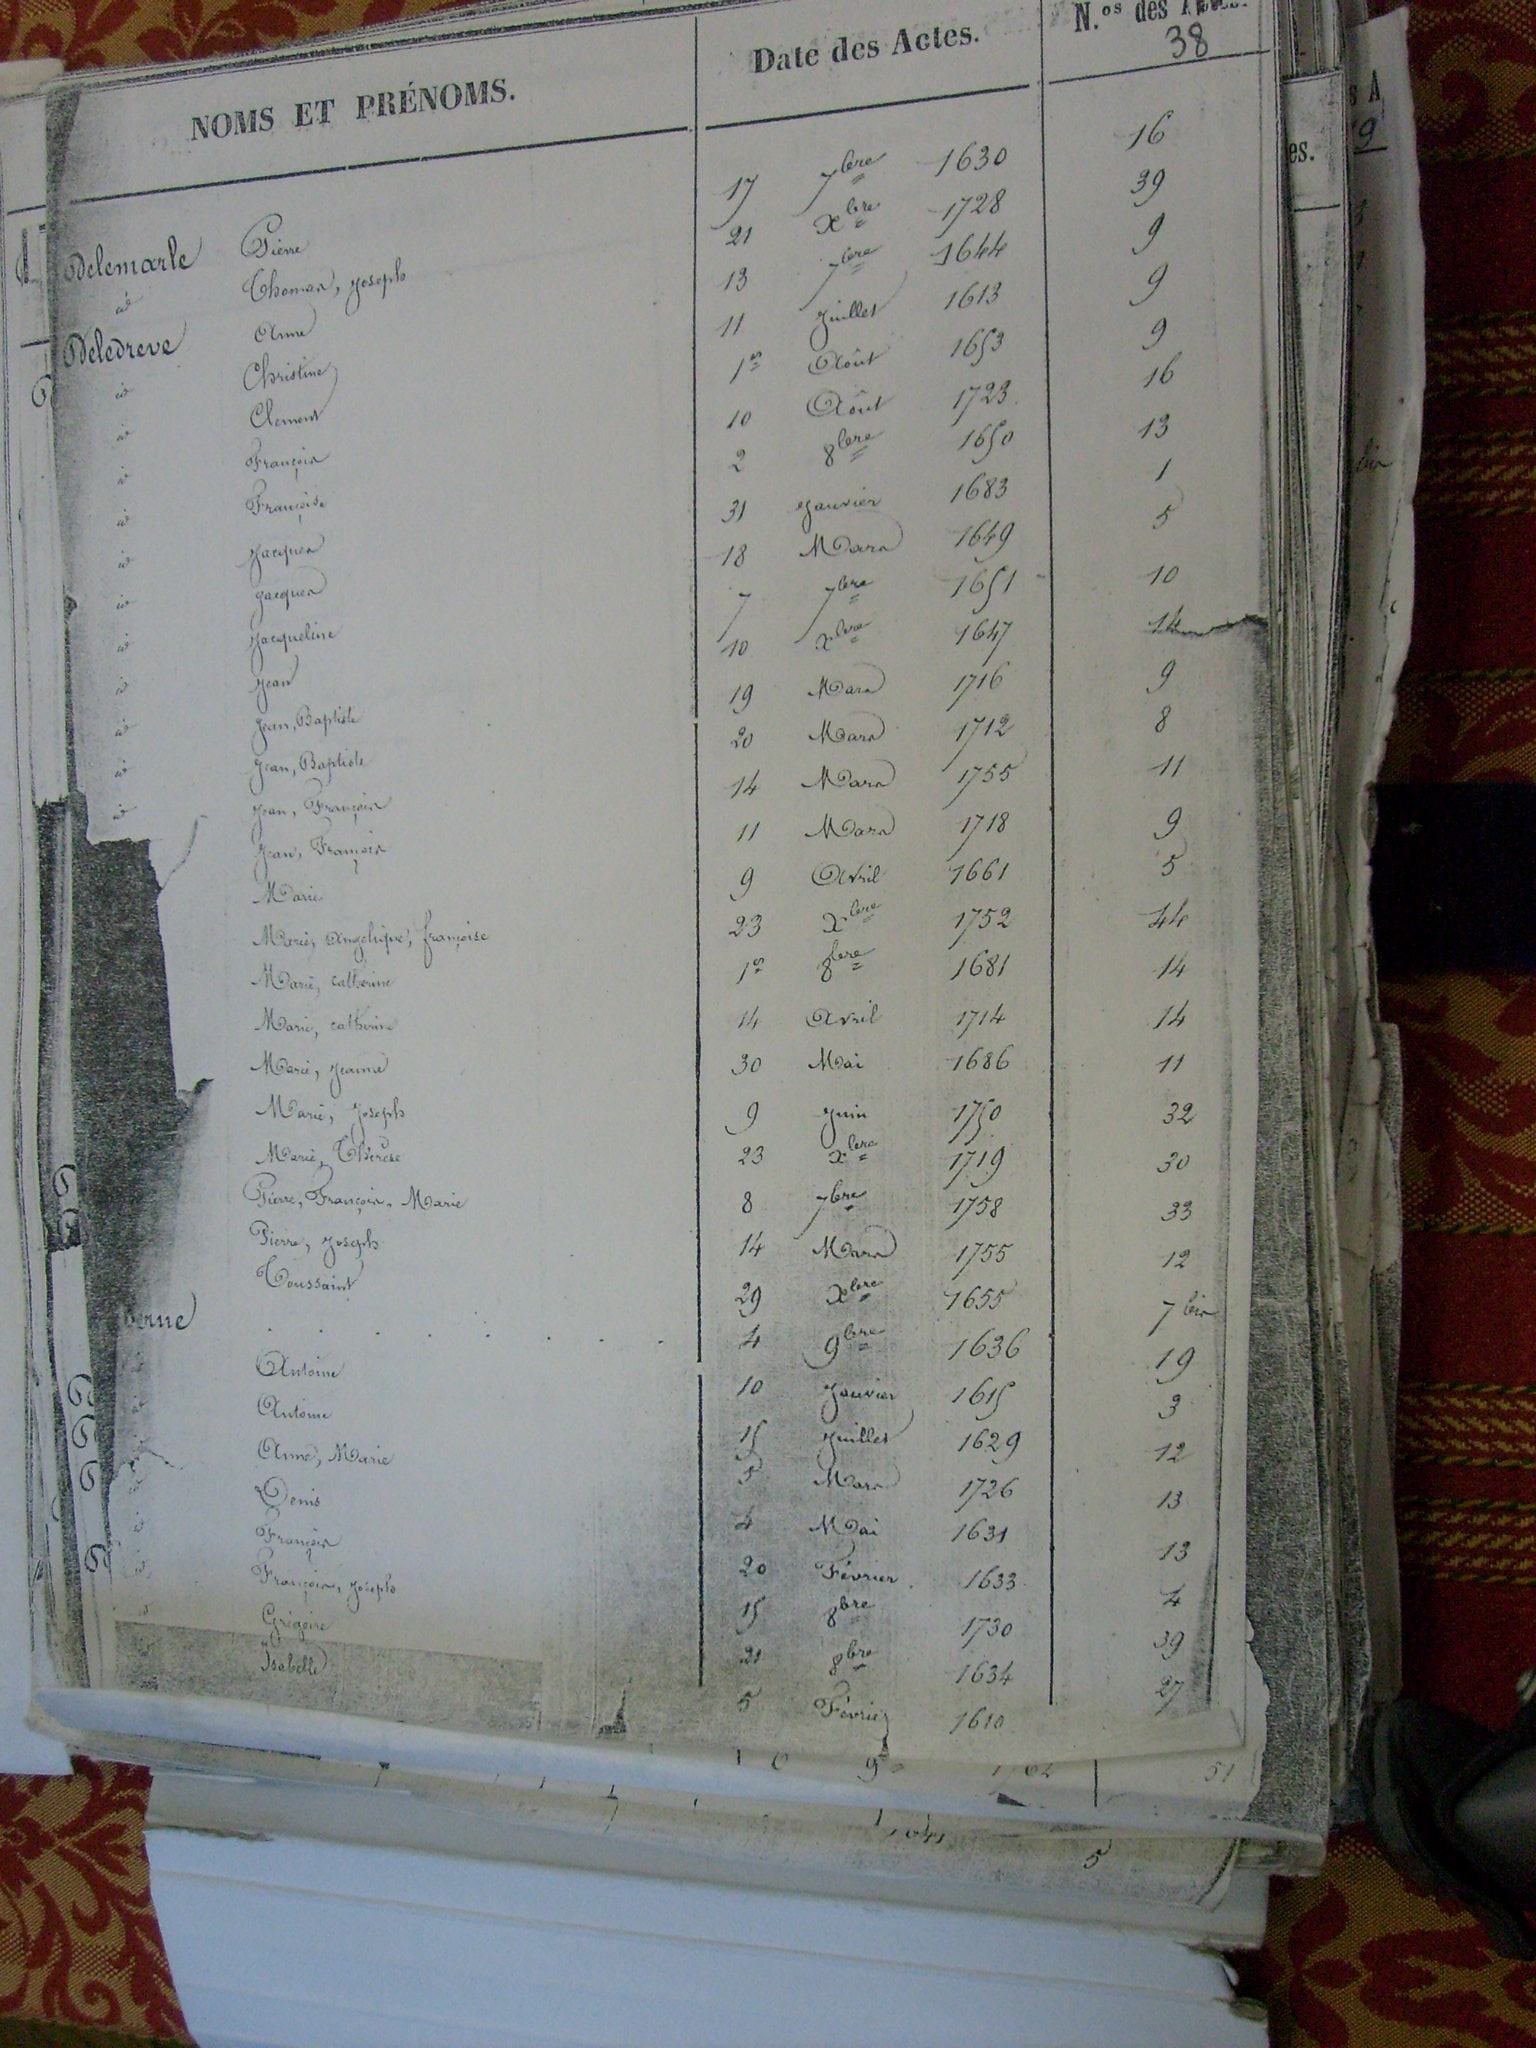 NOMS ET PRÉNOMS. Date des Actes. N.os des Actes.
38
Delemarle Pierre 17 7bre 1630 16
id Thomas, Joseph 21 Xbre 1728 39
Deledreve Anne 13 7bre 1644 9
id Christine 11 Juillet 1613 9
id Clement 1er Août 1653 9
id François 10 Août 1723 16
id Françoise 2 8bre 1650 13
id Jacques 31 Janvier 1683 1
id Jacques 18 Mars 1649 5
id Jacqueline 7 7bre 1651 10
id Jean 10 xbre 1647 14
id Jean, Baptiste 19 Mars 1716 9
id Jean, Baptiste 20 Mars 1712 8
id Jean, François 14 Mars 1755 11
Jean, François 11 Mars 1718 9
Marie 9 Avril 1661 5
Marie, Angelique, françoise 23 xbre 1752 44
Marie, catherine 1er 8bre 1681 14
Marie, catherine 14 Avril 1714 14
Marie, Jeanne 30 Mai 1686 11
Marie, Joseph 9 Juin 1750 32
Marie, Thérèse 23 xbre 1719 30
Pierre, François, Marie 8 7bre 1758 33
Pierre, Joseph 14 Mars 1755 12
Toussaint 29 xbre 1655 7 bis
berne . . . . . . . . 4 9bre 1636 19
id Antoine 10 Janvier 1615 3
id Antoine 15 Juillet 1629 12
id Anne, Marie 5 Mars 1726 13
id Denis 4 Mai 1631 13
id François 20 Février 1633 4
id François, Joseph 15 8bre 1730 39
id Grégoire 21 8bre 1634 27
Isabelle 5 Février 1610
1762 51
5